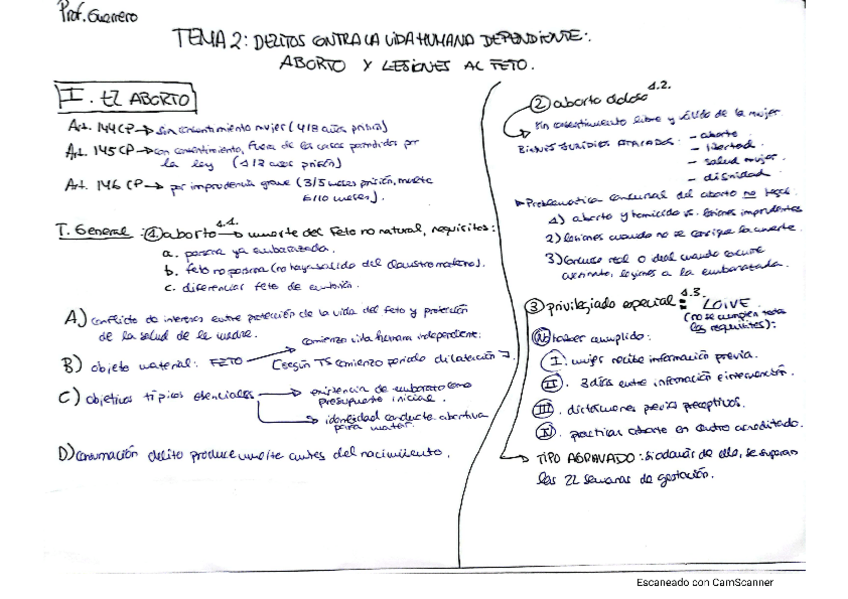 Prof. Guerrero
TEMA 2: DELITOS CONTRA LA VIDA HUMANA DEPENDIENTE:
ABORTO Y LESIONES AL FETO.
I. EL ABORTO
Art. 144 CP → sin consentimiento mujer (4/8 años prisión)
Art. 145 CP → con consentimiento, fuera de los casos permitidos por
la ley (1/3 años prisión)
Art. 146 CP → por imprudencia grave (3/5 meses prisión, multa
6/10 meses).
T. General: ① aborto 1.1. → muerte del feto no natural, requisitos:
a. persona ya embarazada.
b. feto no persona (no haya salido del claustro materno).
c. diferenciar feto de embrión.
A) conflicto de intereses entre protección de la vida del feto y protección
de la salud de la madre.
B) objeto material: FETO → comienzo vida humana independiente:
(según TS comienzo periodo dilatación).
C) objetivos típicos esenciales → existencia de embarazo como
presupuesto inicial.
→ idoneidad conducta abortiva
para matar.
D) consumación delito produce muerte antes del nacimiento.
② aborto doloso 1.2.
sin consentimiento libre y válido de la mujer
BIENES JURÍDICOS ATACADOS: - aborto
- libertad.
- salud mujer.
- dignidad
Problemática concursal del aborto no legal.
1) aborto y homicidio vs. lesiones imprudentes
2) lesiones cuando no se consigue la muerte.
3) concurso real o ideal cuando
lesiones a la embarazada.
③ privilegiado especial 1.3. : LOIVE
(no se cumplen todos
los requisitos):
haber cumplido:
I. mujer recibe información previa.
II. 3 días entre información e intervención.
III. dictámenes previos preceptivos.
IV. practicar aborto en centro acreditado.
→ TIPO AGRAVADO: si además de ello, se superan
las 22 semanas de gestación.
Escaneado con CamScanner